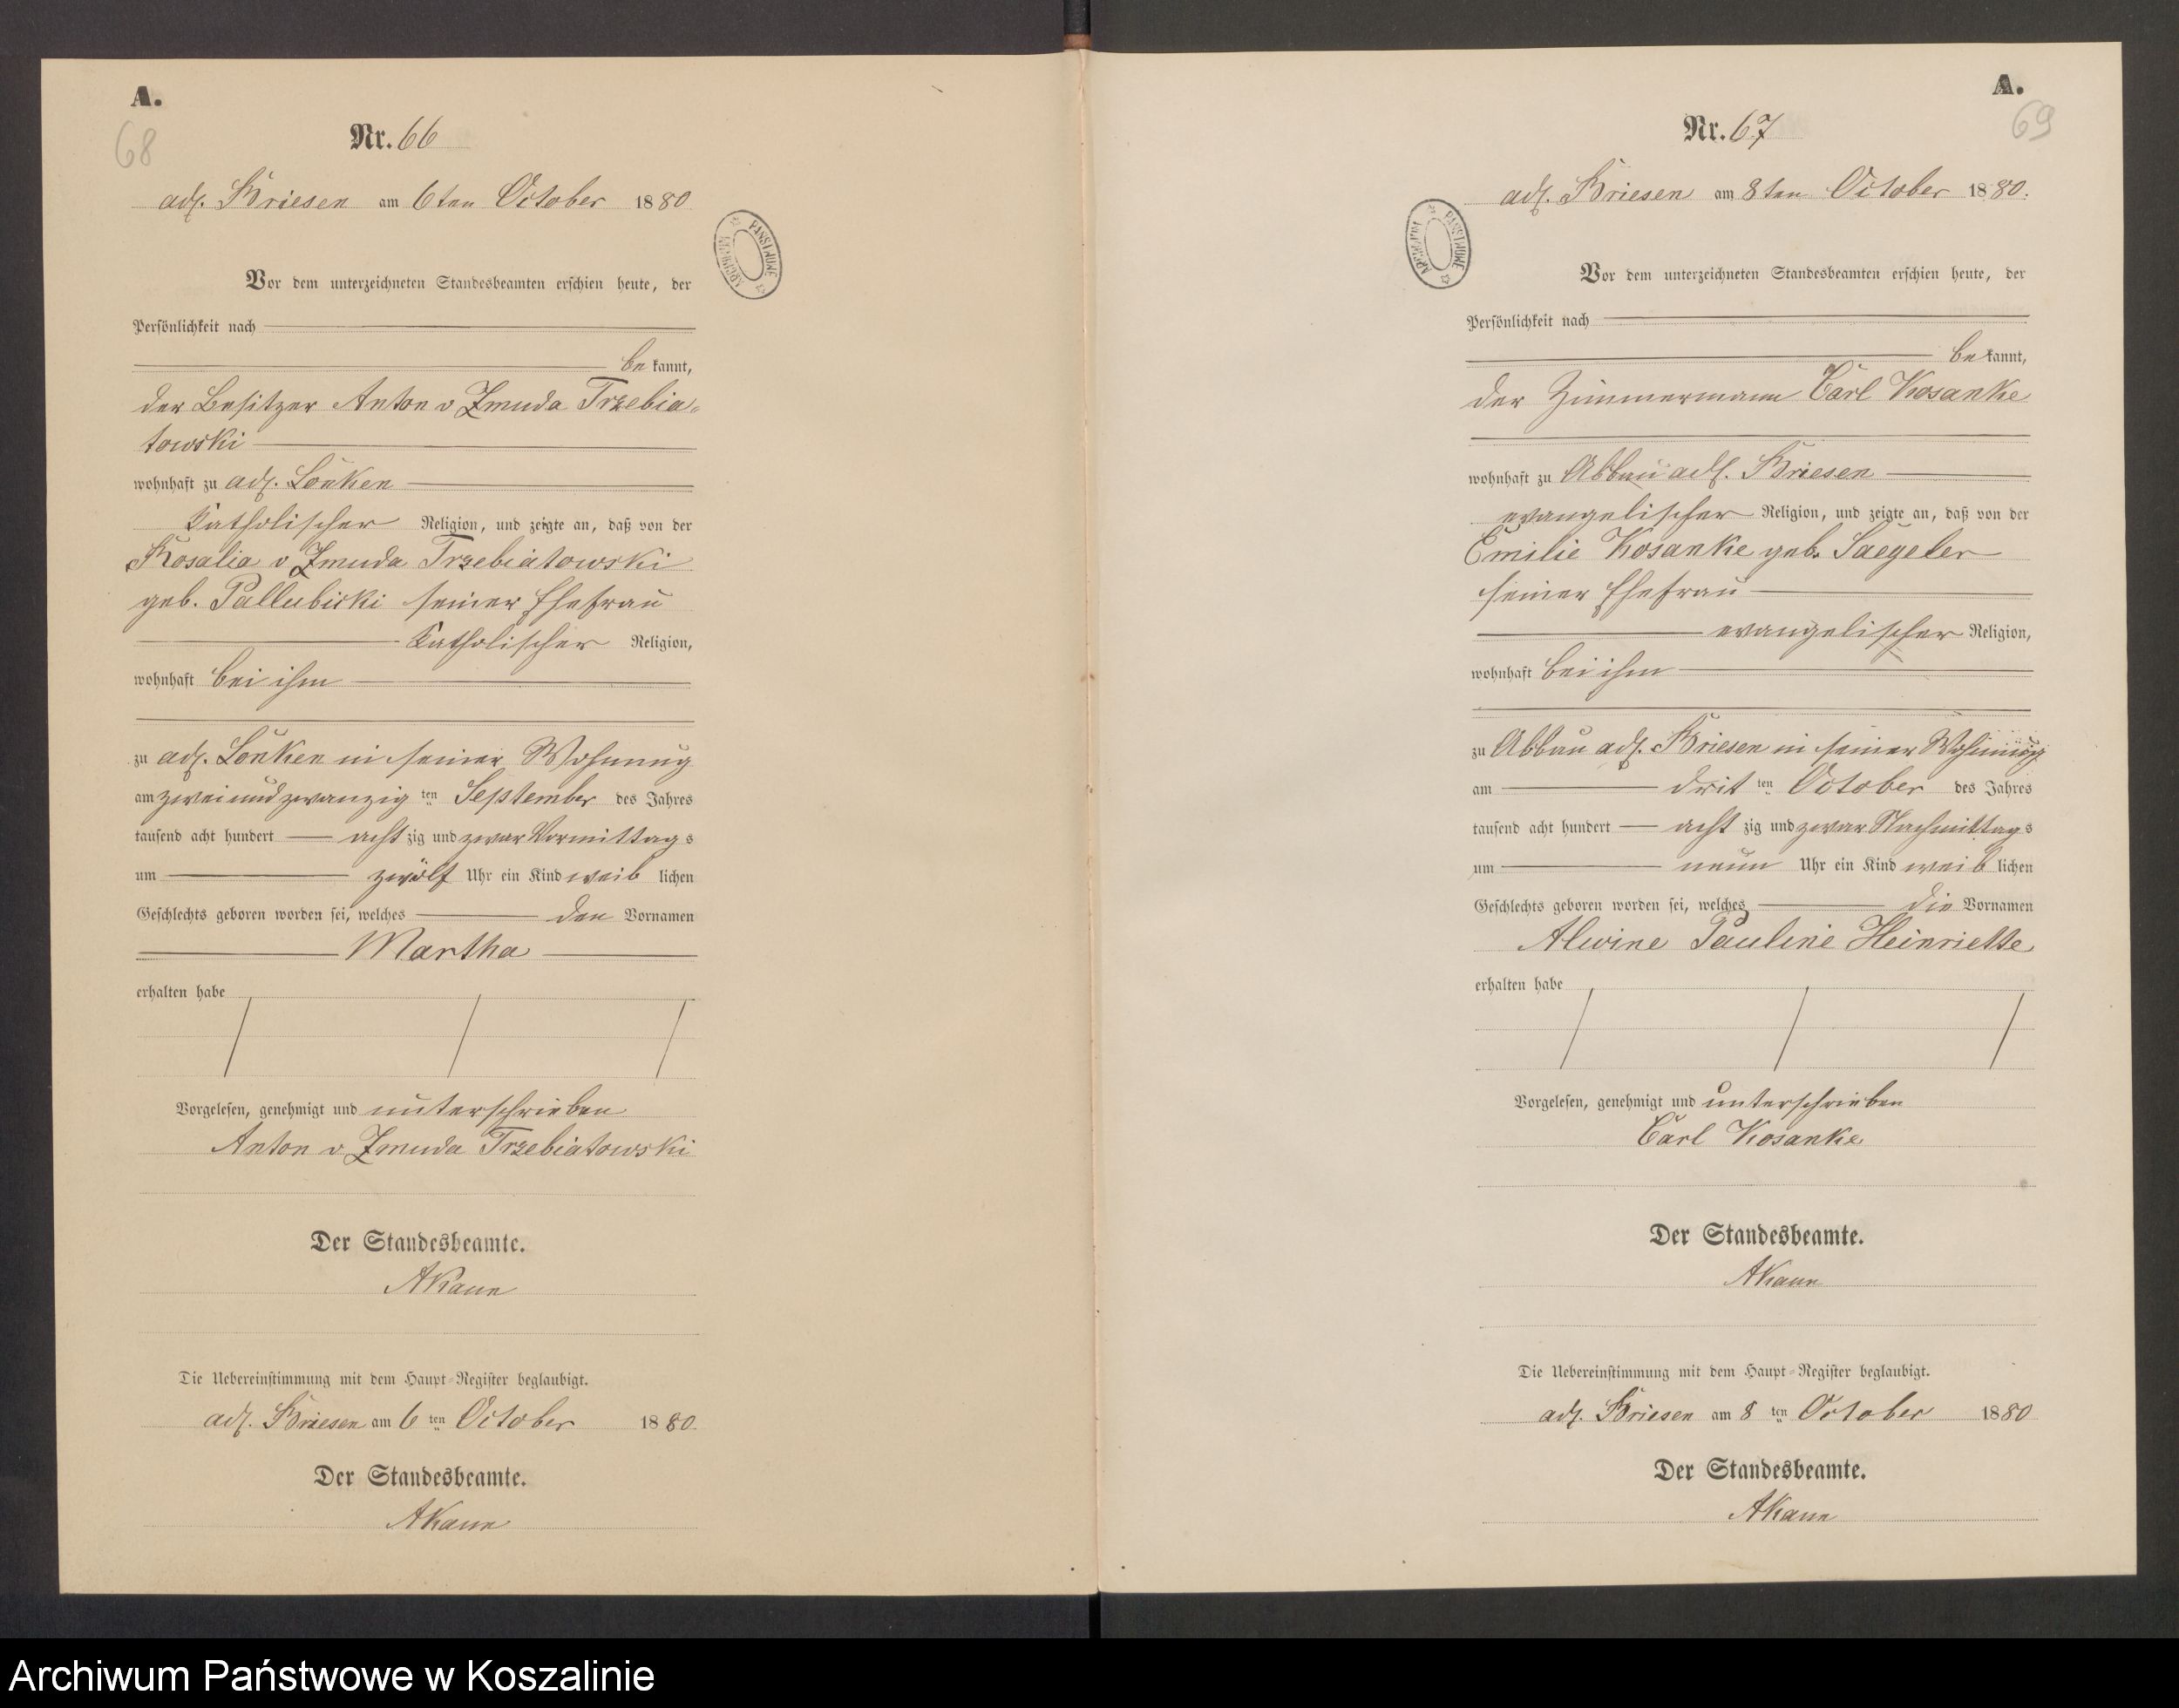 A.
68
Nr. 66
adl. Briesen am 6ten October 1880
Vor dem unterzeichneten Standesbeamten erschien heute, der
Persönlichkeit nach
bekannt,
der Besitzer Anton v Zmuda Trzebia-
towski
wohnhaft zu adl. Lonken
katholischer Religion, und zeigte an, daß von der
Rosalia v Zmuda Trzebiatowski
geb. Pallubicki seiner Ehefrau
katholischer Religion,
wohnhaft bei ihm
zu adl. Lonken in seiner Wohnung
am zweiundzwanzig ten September des Jahres
tausend acht hundert achtzig und zwar Vormittags
um zwölf Uhr ein Kind weiblichen
Geschlechts geboren worden sei, welches den Vornamen
Martha
erhalten habe
Vorgelesen, genehmigt und unterschrieben
Anton v Zmuda Trzebiatowski
Der Standesbeamte.
AKaun
Die Uebereinstimmung mit dem Haupt-Register beglaubigt.
adl. Briesen am 6 ten October 1880.
Der Standesbeamte.
AKaun
ARCHIWUM PAŃSTWOWE
A.
69
Nr. 67
adl. Briesen am 8ten October 1880.
ARCHIWUM PAŃSTWOWE
Vor dem unterzeichneten Standesbeamten erschien heute, der
Persönlichkeit nach
bekannt,
der Zimmermann Carl Kosanke
wohnhaft zu Abbau adl. Briesen
evangelischer Religion, und zeigte an, daß von der
Emilie Kosanke geb. Saegeler
seiner Ehefrau
evangelischer Religion,
wohnhaft bei ihm
zu Abbau adl. Briesen in seiner Wohnung
am drit ten October des Jahres
tausend acht hundert achtzig und zwar Nachmittags
um neun Uhr ein Kind weiblichen
Geschlechts geboren worden sei, welches die Vornamen
Alwine Pauline Heinriette
erhalten habe
Vorgelesen, genehmigt und unterschrieben
Carl Kosanke
Der Standesbeamte.
AKaun
Die Uebereinstimmung mit dem Haupt-Register beglaubigt.
adl. Briesen am 8 ten October 1880
Der Standesbeamte.
AKaun
Archiwum Państwowe w Koszalinie